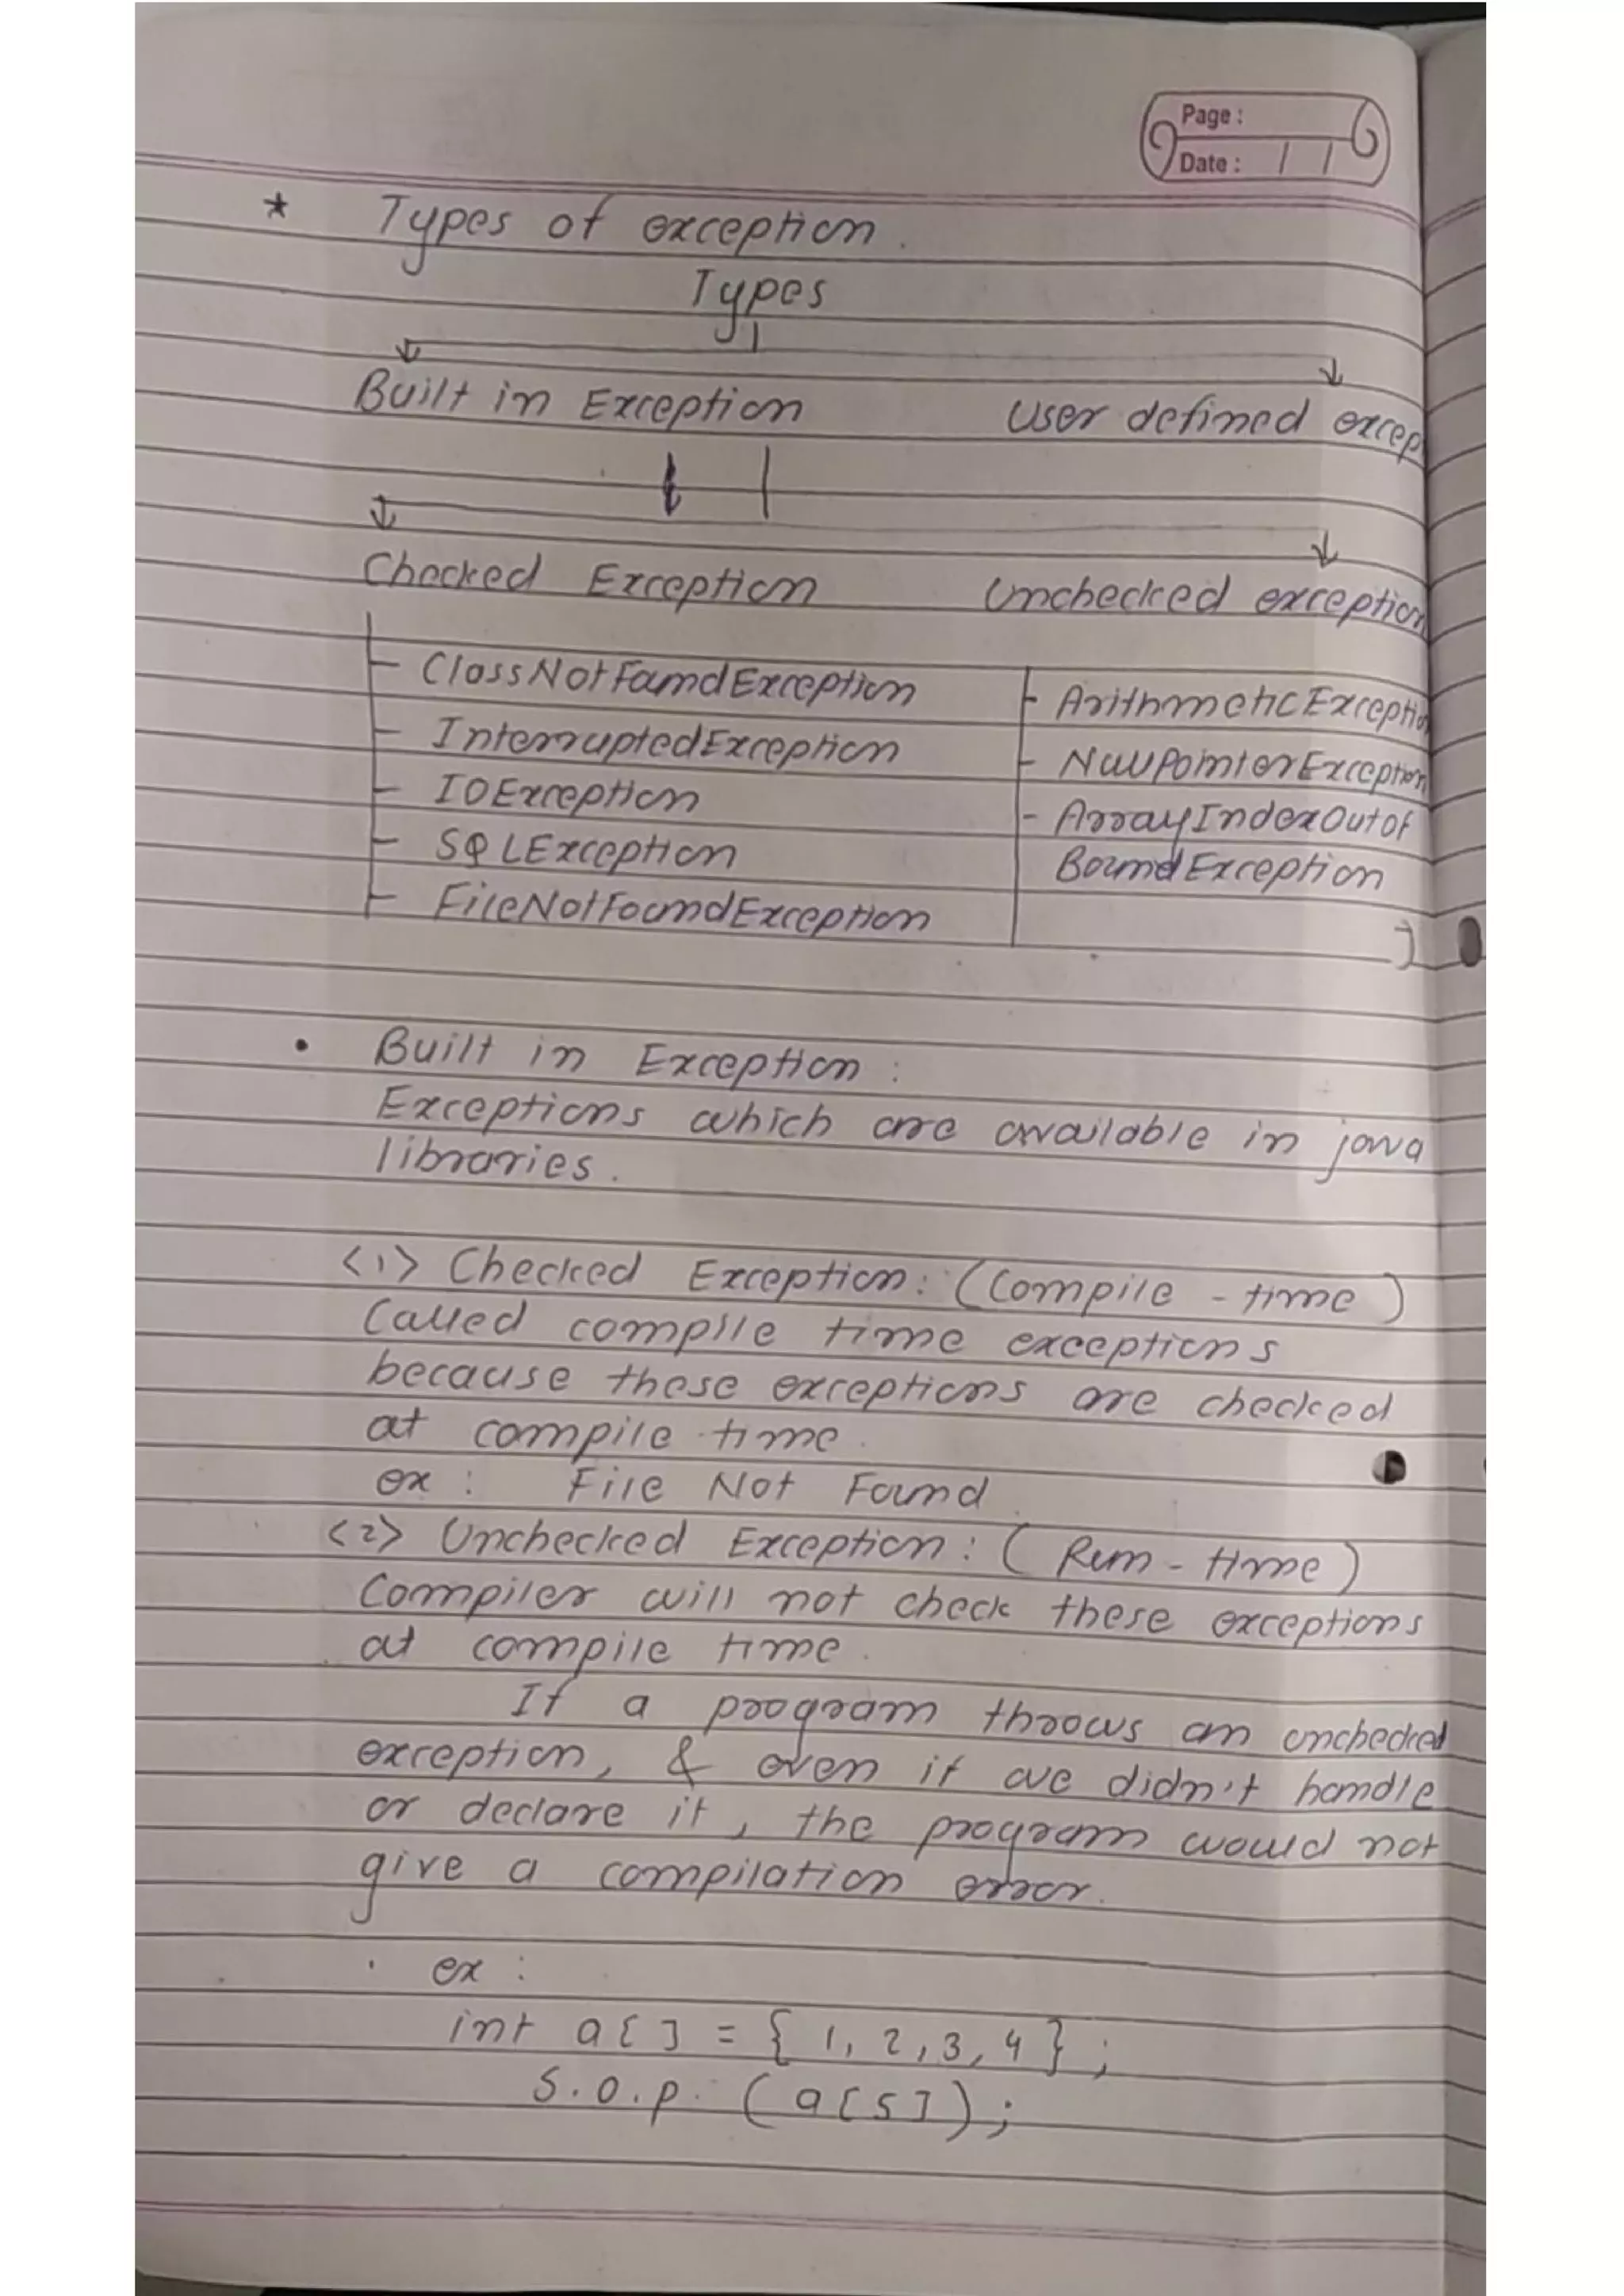 Page :
Date : / /
* Types of exception.
Types
Built in Exception User defined excep
Checked Exception Unchecked exception
- ClassNotFoundException - ArithmeticExceptio
- InterruptedException - NullPointerException
- IOException - ArrayIndexOutof
- SQLException BoundException
- FileNotFoundException
• Built in Exception :
Exceptions which are available in java
libraries.
<1> Checked Exception : (Compile - time)
Called compile time exceptions
because these exceptions are checked
at compile time.
ex : File Not Found.
<2> Unchecked Exception : (Run - time)
Compiler will not check these exceptions
at compile time.
If a program throws an unchecked
exception, & even if we didn't handle
or declare it, the program would not
give a compilation error.
· ex :
int a[] = { 1, 2, 3, 4 } ;
S.O.P. (a[5]);